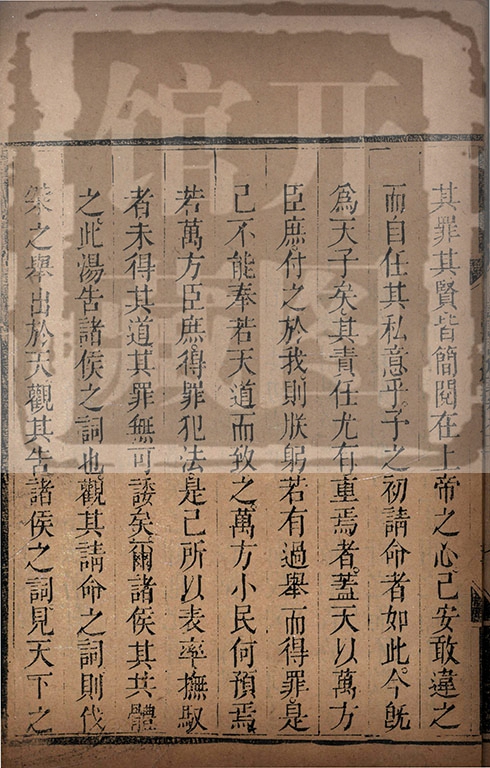 其罪其賢皆簡閱在上帝之心己安敢違之
而自任其私意乎予之初請命者如此今旣
爲天子矣其責任尤有重焉者蓋天以萬方
臣庶付之於我則朕躬若有過舉而得罪是
己不能奉若天道而致之萬方小民何預焉
若萬方臣庶得罪犯法是己所以表率撫馭
者未得其道其罪無可諉矣爾諸侯其共體
之此湯告諸侯之詞也觀其請命之詞則伐
桀之舉出於天觀其告諸侯之詞見天下之
开图
馆藏